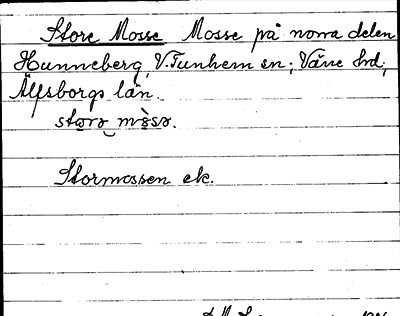 Store Mosse Mosse på norra delen
Hunneberg, V. Tunhem sn; Väne hd;
Älfsborgs län.
Stormossen ek.